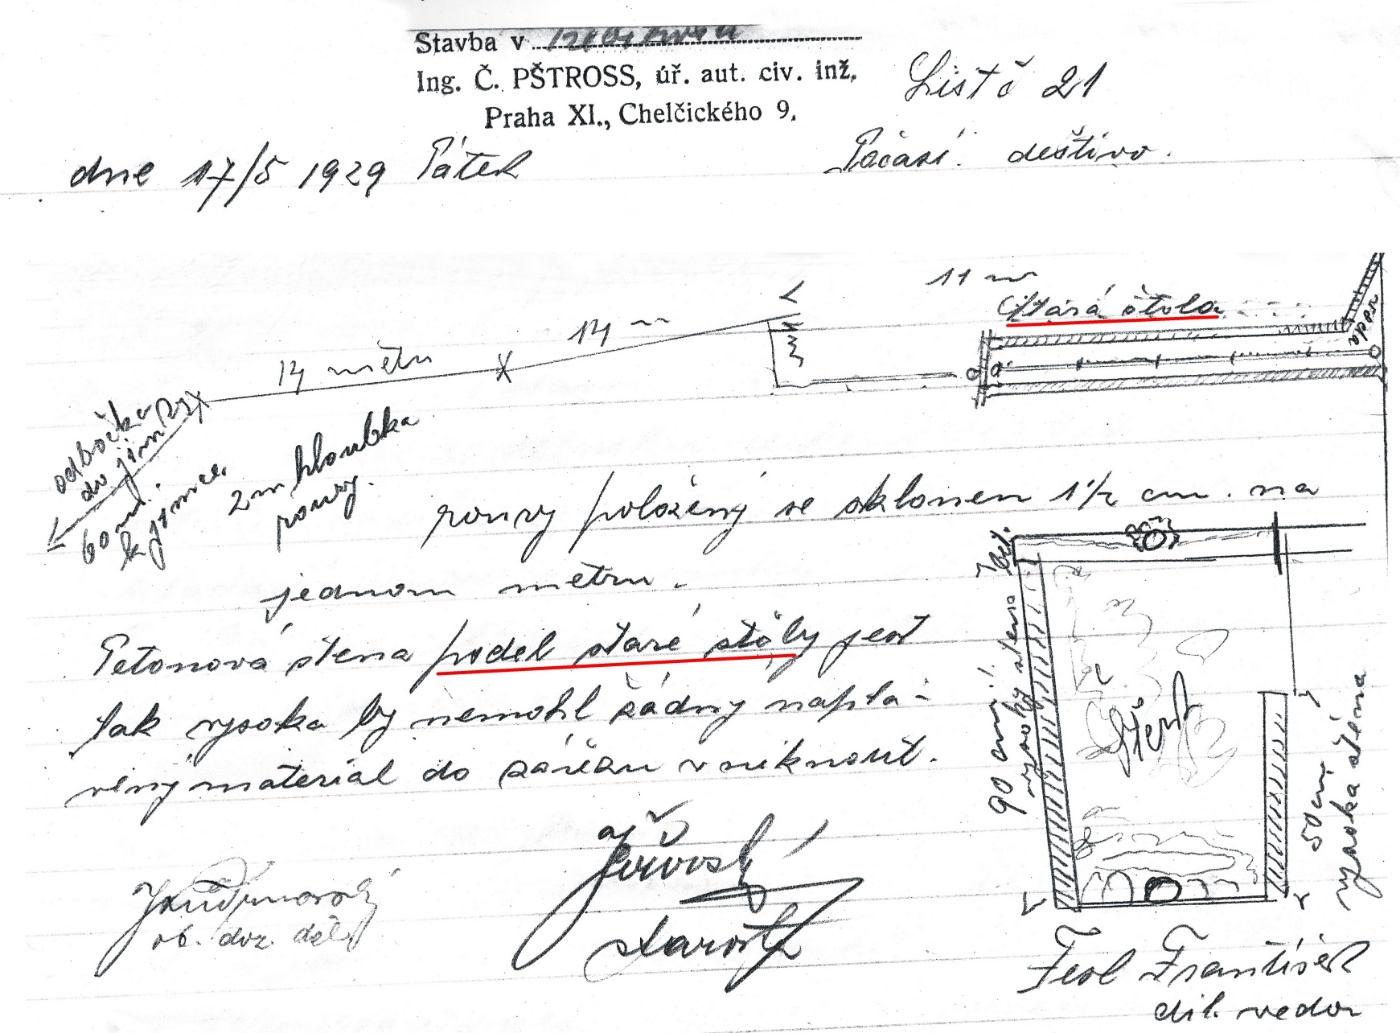 Stavba v
Ing. Č. PŠTROSS, úř. aut. civ. inž,
Praha XI., Chelčického 9.
List č 21
dne 17/5 1929 Pátek
Počasí. deštivo.
11 m
Stará štola
14 metru
14 m
odbočka
do jímky
60 m.
k jímce.
2 m hloubka
roury.
roury položený se sklonem 1½ cm. na
jednom metru.
Betonová stena podel staré stoly jest
tak vysoka by nemohl žádný napla-
vený material do zářezu vniknout.
90 cm
vysoký stena
Šterk
50 cm
vysoka stena
ob. doz. 
starosta
Ferl František
díl. vedou